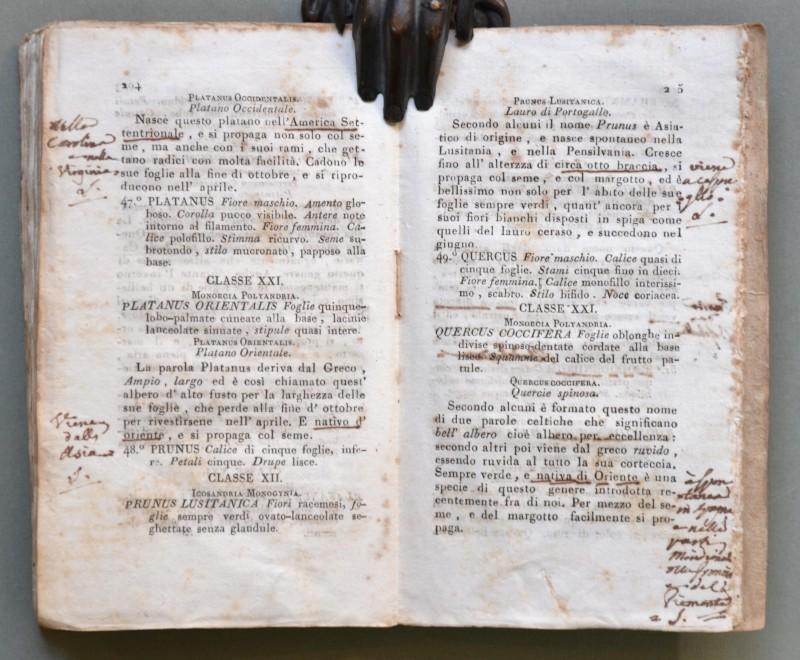 204
PLATANUS OCCIDENTALIS.
Platano Occidentale.
Nasce questo platano nell'America Set-
tentrionale, e si propaga non solo col se-
me, ma anche con i suoi rami, che get-
tano radici con molta facilità. Cadono le
sue foglie alla fine di ottobre, e si ripro-
ducono nell' aprile.
47.º PLATANUS Fiore maschio. Amento glo-
boso. Corolla pucco visibile. Antere note
intorno al filamento. Fiore femmina. Ca-
lice polofillo. Stimma ricurvo. Seme su-
brotondo, stilo mucronato, papposo alla
base.
CLASSE XXI.
MONOECIA POLYANDRIA.
PLATANUS ORIENTALIS Foglie quinque-
lobo-palmate cuneate alla base, lacinie
lanceolate sinuate, stipule quasi intere.
PLATANUS ORIENTALIS.
Platano Orientale.
La parola Platanus deriva dal Greco,
Ampio, largo ed è così chiamato quest'
albero d' alto fusto per la larghezza delle
sue foglie, che perde alla fine d' ottobre
per rivestirsene nell' aprile. E nativo d'
oriente, e si propaga col seme.
48.º PRUNUS Calice di cinque foglie, infe-
re. Petali cinque. Drupe lisce.
CLASSE XII.
ICOSANDRIA MONOGYNIA.
PRUNUS LUSITANICA Fiori racemosi, fo-
glie sempre verdi ovato-lanceolate se-
ghettate senza glandule.
nella
Carolina
e nella
Virginia
S.
Viene
dall'
Asia
S.
2 5
PRUNUS LUSITANICA.
Lauro di Portogallo.
Secondo alcuni il nome Prunus è Asia-
tico di origine, e nasce spontaneo nella
Lusitania, e nella Pensilvania. Cresce
fino all' alterzza di circa otto braccia, si
propaga col seme, e col margotto, ed è
bellissimo non solo per l' abito delle sue
foglie sempre verdi, quant' ancora per i
suoi fiori bianchi disposti in spiga come
quelli del lauro ceraso, e succedono nel
giugno.
49.º QUERCUS Fiore maschio. Calice quasi di
cinque foglie. Stami cinque fino in dieci.
Fiore femmina. Calice monofillo interissi-
mo, scabro. Stilo bifido. Noce coriacea.
CLASSE XXI.
MONOECIA POLYANDRIA.
QUERCUS COCCIFERA Foglie oblonghe in-
divise spinoso-dentate cordate alla base
lisce. Squamme del calice del frutto pa-
tule.
QUERCUS COCCIFERA.
Quercie spinosa.
Secondo alcuni è formato questo nome
di due parole celtiche che significano
bell' albero cioè albero per eccellenza:
secondo altri poi viene dal greco ruvido,
essendo ruvida al tutto la sua corteccia.
Sempre verde, e nativa di Oriente è una
specie di questo genere introdotta re-
centemente fra di noi. Per mezzo del se-
me, e del margotto facilmente si pro-
paga.
viene
e nelle
parti
del
Piemonte
S.